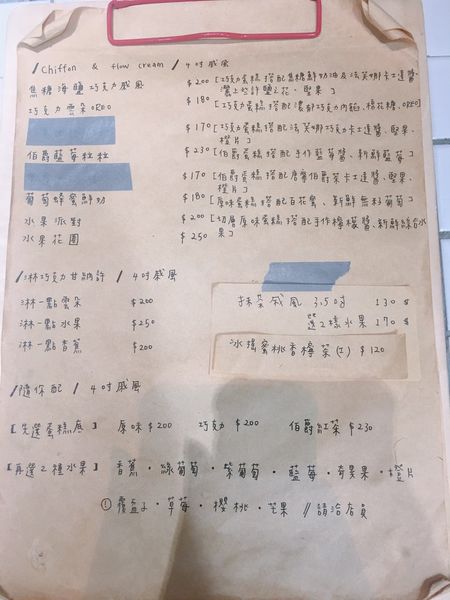 / Chiffon & flow cream / 4吋戚風
焦糖海鹽巧克力戚風 $200 [巧克力蛋糕搭配焦糖鮮奶油及法芙娜卡士達醬
灑上些許鹽之花、堅果]
巧克力雲朵OREO $180 [巧克力蛋糕搭配濃郁巧克力內餡、棉花糖、OREO]
$170 [巧克力蛋糕搭配法芙娜巧克力卡士達醬、堅果、
橙片]
伯爵藍莓粒粒 $230 [伯爵蛋糕搭配手作藍莓醬、新鮮藍莓]
$170 [伯爵蛋糕搭配唐寧伯爵茶卡士達醬、堅果、
橙片]
葡萄蜂蜜鮮奶 $180 [原味蛋糕搭配百花蜜、新鮮無籽葡萄]
水果派對 $200 [切層原味蛋糕搭配手作檸檬醬、新鮮綜合水
果]
水果花園 $250
/ 淋巧克力甘納許 / 4吋戚風
淋一點雲朵 $200
淋一點水果 $250
淋一點香蕉 $200
抹茶戚風 3.5吋 130 $
選2樣水果 170 $
冰搖蜜桃香檸茶(I) $120
/ 隨你配 / 4吋戚風
[先選蛋糕底] 原味$200 巧克力$200 伯爵紅茶$230
[再選2種水果] 香蕉・綠葡萄・紫葡萄・藍莓・奇異果・橙片
! 覆盆子・草莓・櫻桃・芒果 // 請洽店員